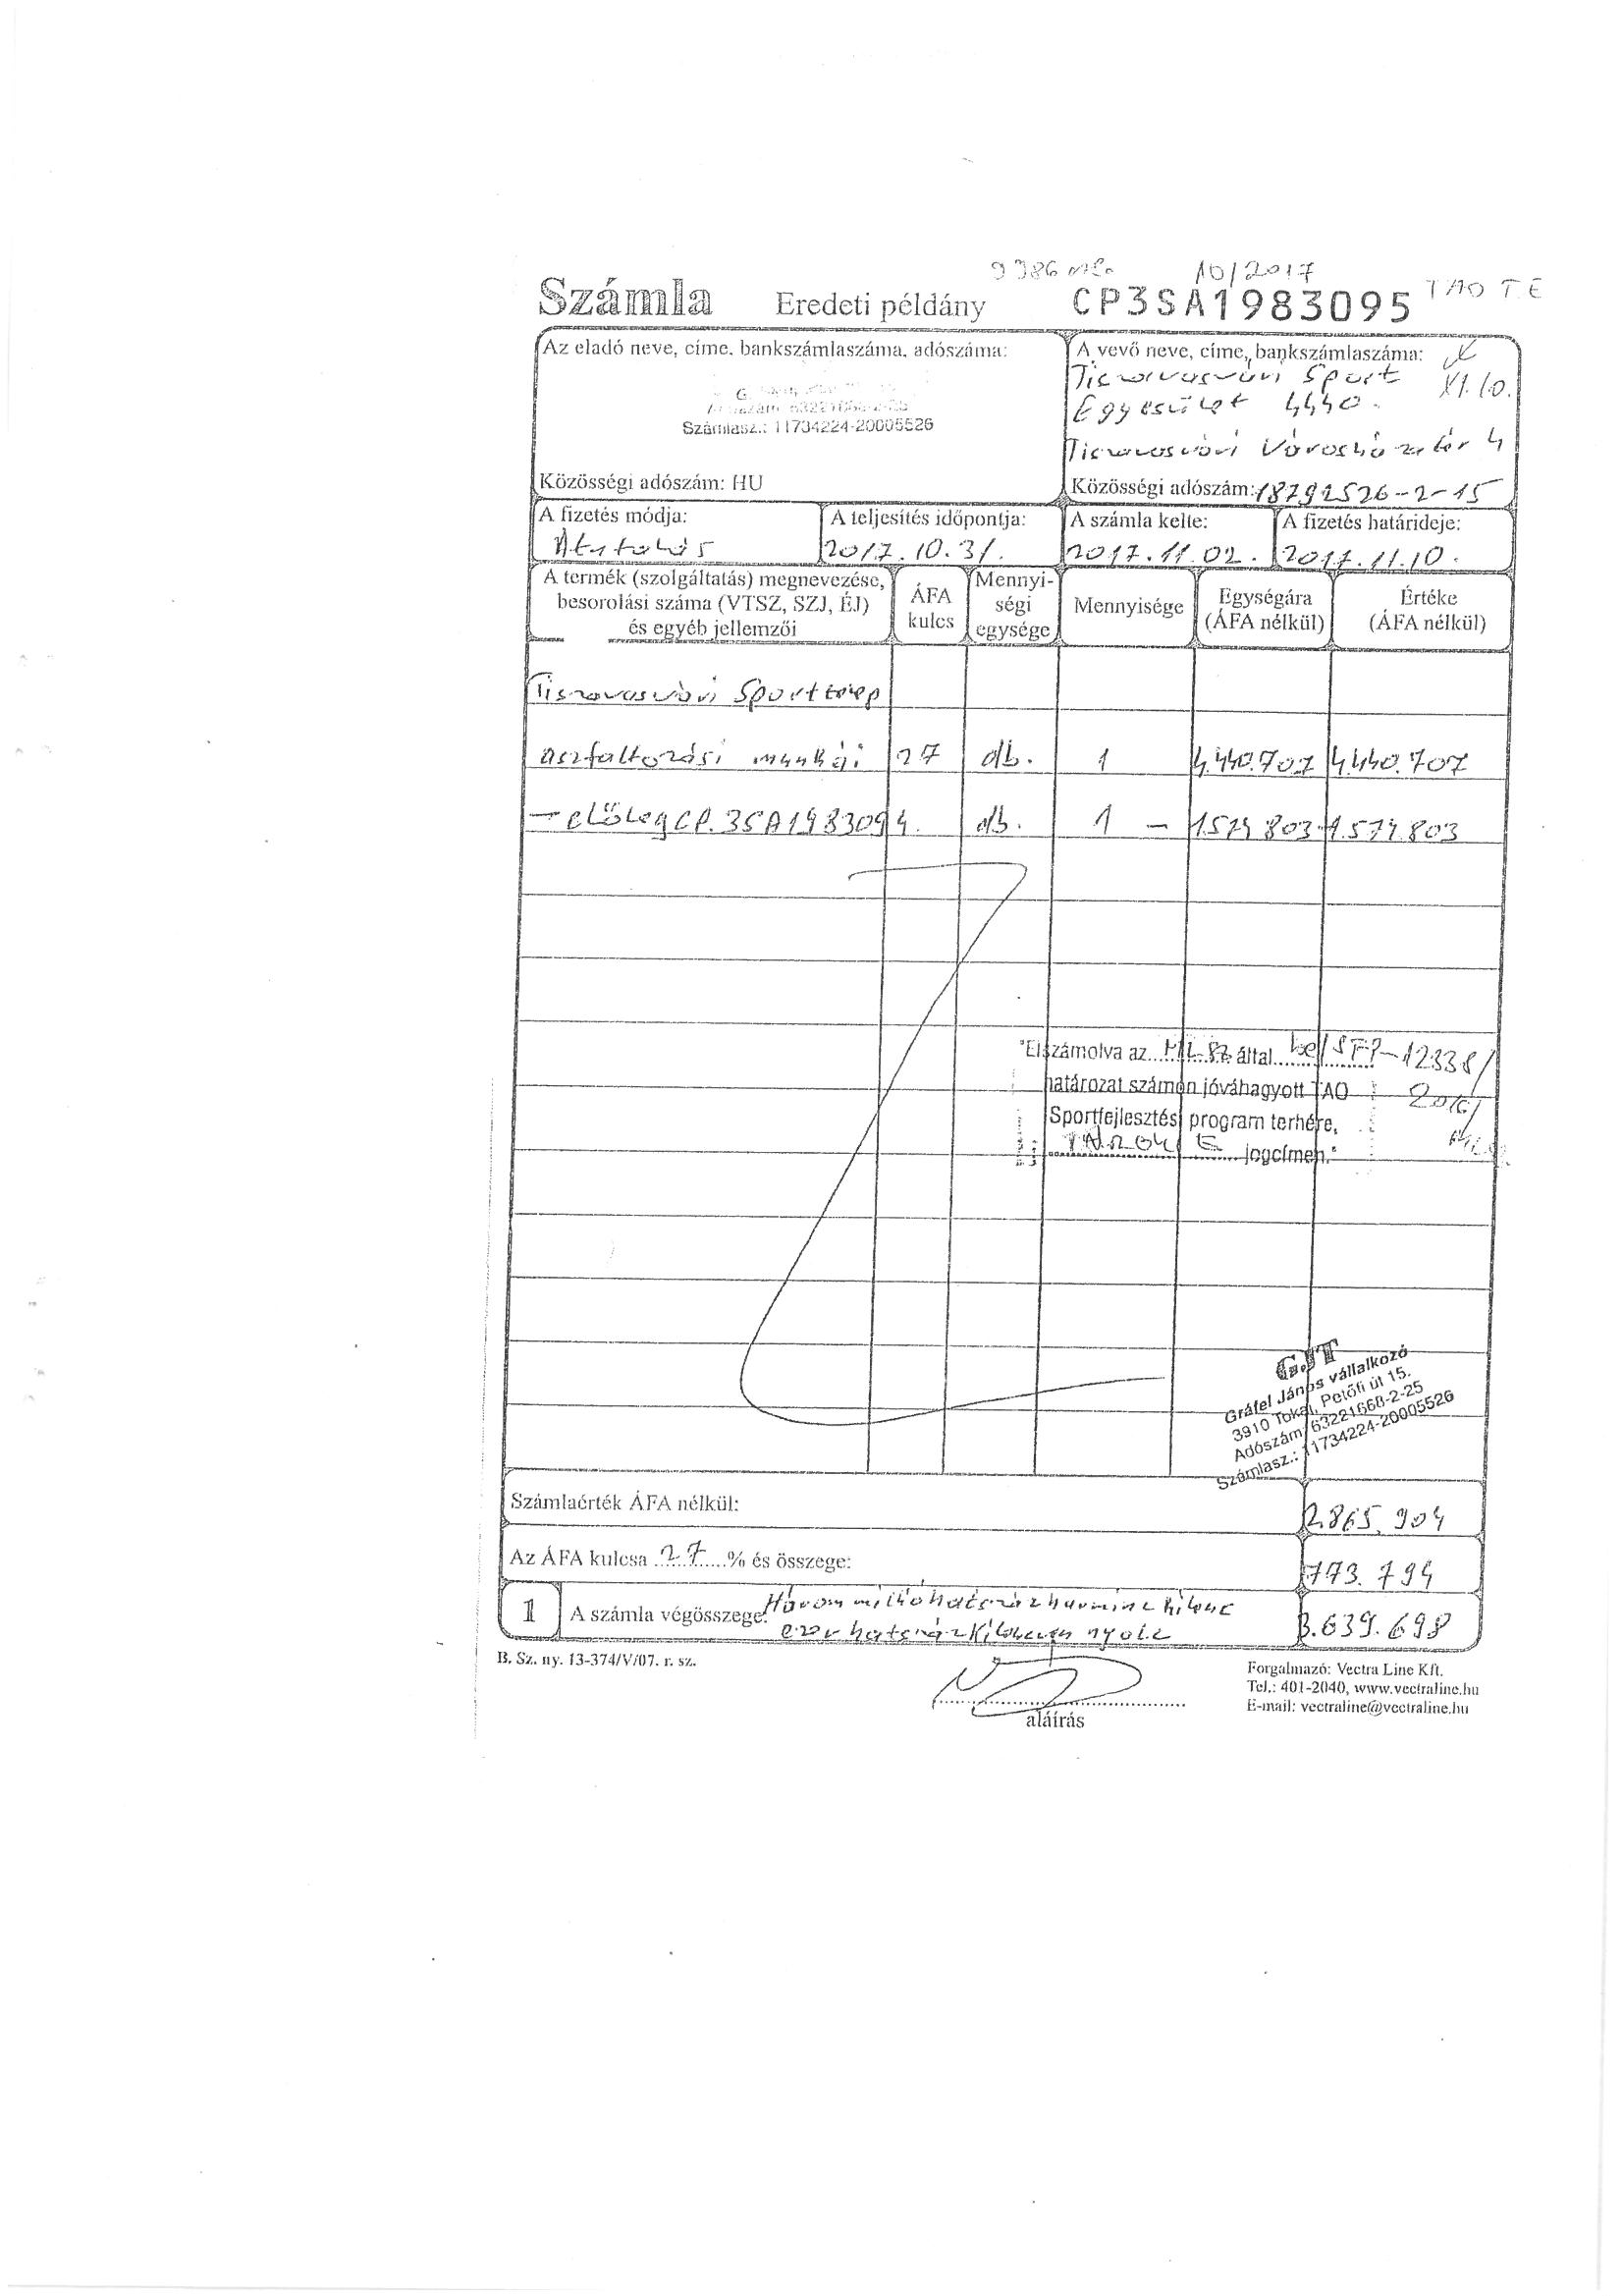 9386
10/2017
Számla Eredeti példány CP3SA1983095 TAO TE
Az eladó neve, címe, bankszámlaszáma, adószáma:
Számlasz.: 11734224-20005526
Közösségi adószám: HU
A vevő neve, címe, bankszámlaszáma:
Tiszavasvári Sport XI.10.
Egyesület 4440.
Tiszavasvári Városháza tér 4
Közösségi adószám: 18792526-2-15
A fizetés módja: A teljesítés időpontja: A számla kelte: A fizetés határideje:
Átutalás 2017.10.31. 2017.11.02. 2017.11.10.
A termék (szolgáltatás) megnevezése, besorolási száma (VTSZ, SZJ, ÉJ) és egyéb jellemzői
ÁFA kulcs
Mennyi-ségi egysége
Mennyisége
Egységára (ÁFA nélkül)
Értéke (ÁFA nélkül)
Tiszavasvári Sporttelep
aszfaltozási munkái 27 db. 1 4.440.707 4.440.707
- előleg CP.3SA1983094. db. 1 - 1.574.803 -1.574.803
"Elszámolva az által be/SFP-12338/
határozat számon jóváhagyott TAO 2016/
Sportfejlesztési program terhére,
jogcímen."
G.J.T
Gráfel János vállalkozó
3910 Tokaj, Petőfi út 15.
Adószám: 63221668-2-25
Számlasz.: 11734224-20005526
Számlaérték ÁFA nélkül: 2.865.904
Az ÁFA kulcsa 27 % és összege: 773.794
1 A számla végösszege: Hárommillióhatszázharminckilenc
ezerhatszázkilencvennyolc 3.639.698
B. Sz. ny. 13-374/V/07. r. sz.
aláírás
Forgalmazó: Vectra Line Kft.
Tel.: 401-2040, www.vectraline.hu
E-mail: vectraline@vectraline.hu